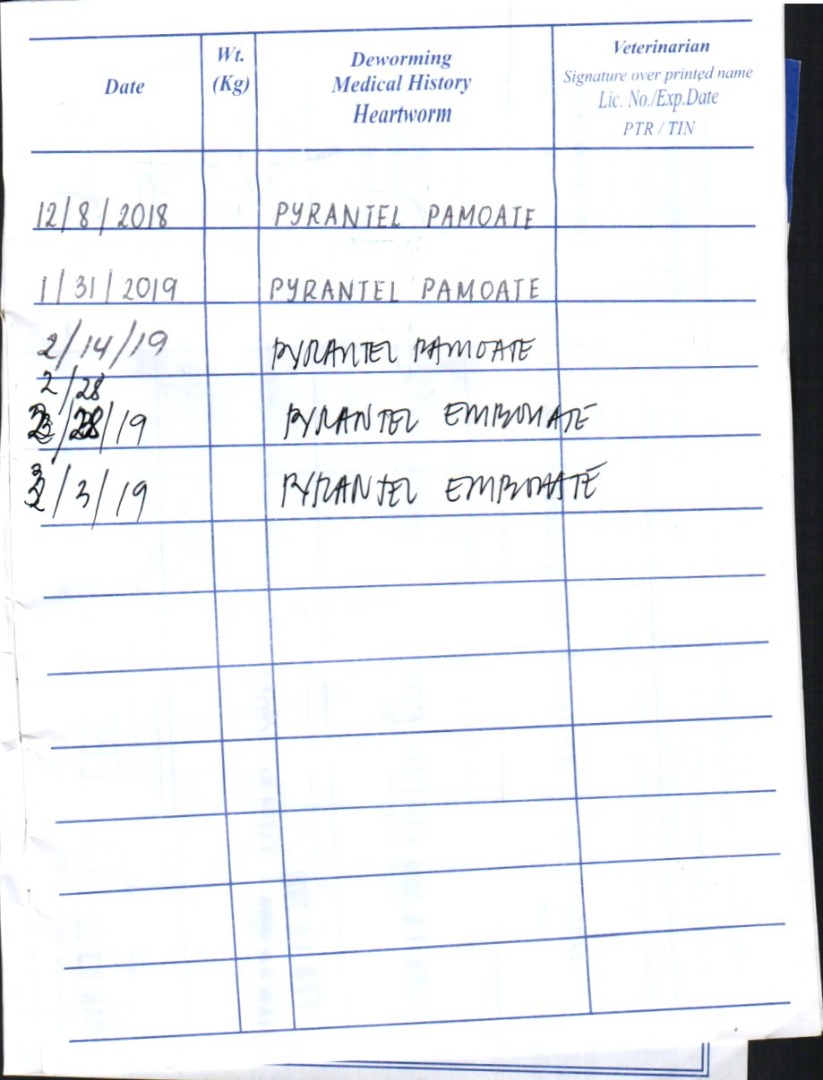 Date
Wt.
(Kg)
Deworming
Medical History
Heartworm
Veterinarian
Signature over printed name
Lic. No./Exp.Date
PTR / TIN
12/8/2018 PYRANTEL PAMOATE
1/31/2019 PYRANTEL PAMOATE
2/14/19 PYRANTEL PAMOATE
2/28
/19 PYRANTEL EMBONATE
3/3/19 PYRANTEL EMBONATE